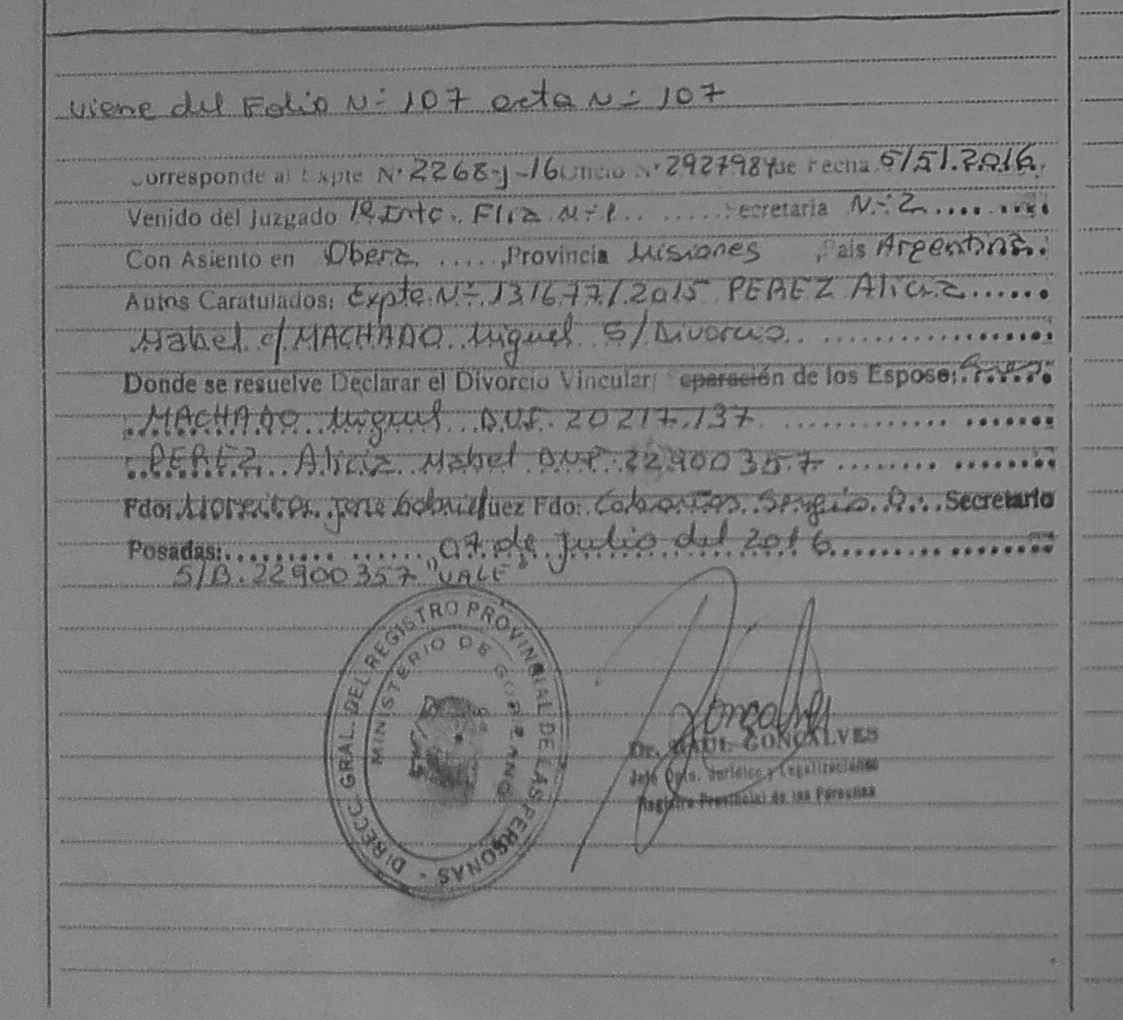 viene del Folio N= 107 acta N= 107
Corresponde al Expte N° 2268-J-16 Oficio N° 2927984 de Fecha 5/5/.2016.
Venido del Juzgado 1ª Intc. Flia N=1 ..... Secretaria N=2........
Con Asiento en Obera ....., Provincia Misiones , País Argentina.:
Autos Caratulados: Expte N=. 131677/.2015 PEREZ Alicia......
Mabel c/ MACHADO Miguel S/ Divorcio ....................
Donde se resuelve Declarar el Divorcio Vincular/ Separación de los Esposo:
MACHADO Miguel D.N.I. 20217.137 ............ .......
PEREZ Alicia Mabel DNI. 22900357 ........ ........
Fdo: Jose Gabriel Juez Fdo: Sergio Secretario
Posadas:......... ...... 07 de Julio del 2016.......... ..........
S/B. 22900357 "VALE"
DIRECC. GRAL. DEL REGISTRO PROVINCIAL DE LAS PERSONAS -
MINISTERIO DE GOBIERNO
Goncalves
Dr. RAUL GONCALVES
Jefe Dpto. Jurídico y Legalizaciones
Registro Provincial de las Personas